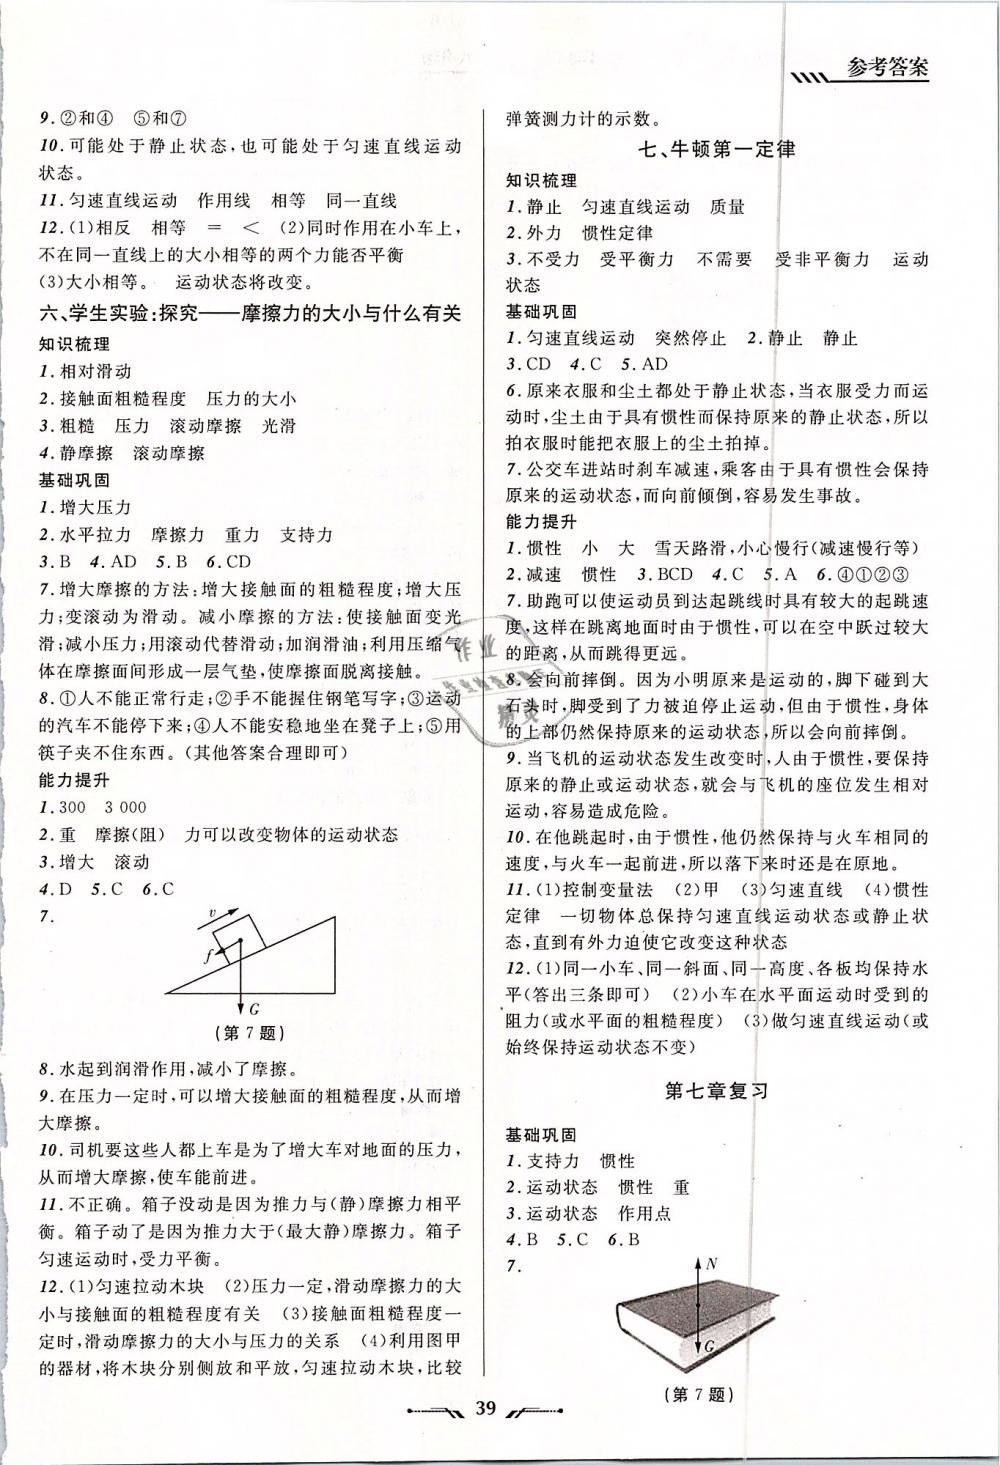 参考答案
9.②和④　⑤和⑦
10.可能处于静止状态,也可能处于匀速直线运动
状态。
11.匀速直线运动　作用线　相等　同一直线
12.(1)相反　相等　＝　＜　(2)同时作用在小车上,
不在同一直线上的大小相等的两个力能否平衡
(3)大小相等。　运动状态将改变。
六、学生实验:探究——摩擦力的大小与什么有关
知识梳理
1.相对滑动
2.接触面粗糙程度　压力的大小
3.粗糙　压力　滚动摩擦　光滑
4.静摩擦　滚动摩擦
基础巩固
1.增大压力
2.水平拉力　摩擦力　重力　支持力
3.B　4.AD　5.B　6.CD
7.增大摩擦的方法:增大接触面的粗糙程度;增大压
力;变滚动为滑动。减小摩擦的方法:使接触面变光
滑;减小压力;用滚动代替滑动;加润滑油;利用压缩气
体在摩擦面间形成一层气垫,使摩擦面脱离接触。
8.①人不能正常行走;②手不能握住钢笔写字;③运动
的汽车不能停下来;④人不能安稳地坐在凳子上;⑤用
筷子夹不住东西。(其他答案合理即可)
能力提升
1.300　3 000
2.重　摩擦(阻)　力可以改变物体的运动状态
3.增大　滚动
4.D　5.C　6.C
7.
v
f
G
(第 7 题)
8.水起到润滑作用,减小了摩擦。
9.在压力一定时,可以增大接触面的粗糙程度,从而增
大摩擦。
10.司机要这些人都上车是为了增大车对地面的压力,
从而增大摩擦,使车能前进。
11.不正确。箱子没动是因为推力与(静)摩擦力相平
衡。箱子动了是因为推力大于(最大静)摩擦力。箱子
匀速运动时,受力平衡。
12.(1)匀速拉动木块　(2)压力一定,滑动摩擦力的大
小与接触面的粗糙程度有关　(3)接触面粗糙程度一
定时,滑动摩擦力的大小与压力的关系　(4)利用图甲
的器材,将木块分别侧放和平放,匀速拉动木块,比较
弹簧测力计的示数。
七、牛顿第一定律
知识梳理
1.静止　匀速直线运动　质量
2.外力　惯性定律
3.不受力　受平衡力　不需要　受非平衡力　运动
状态
基础巩固
1.匀速直线运动　突然停止　2.静止　静止
3.CD　4.C　5.AD
6.原来衣服和尘土都处于静止状态,当衣服受力而运
动时,尘土由于具有惯性而保持原来的静止状态,所以
拍衣服时能把衣服上的尘土拍掉。
7.公交车进站时刹车减速,乘客由于具有惯性会保持
原来的运动状态,而向前倾倒,容易发生事故。
能力提升
1.惯性　小　大　雪天路滑,小心慢行(减速慢行等)
2.减速　惯性　3.BCD　4.C　5.A　6.④①②③
7.助跑可以使运动员到达起跳线时具有较大的起跳速
度,这样在跳离地面时由于惯性,可以在空中跃过较大
的距离,从而跳得更远。
8.会向前摔倒。因为小明原来是运动的,脚下碰到大
石头时,脚受到了力被迫停止运动,但由于惯性,身体
的上部仍然保持原来的运动状态,所以会向前摔倒。
9.当飞机的运动状态发生改变时,人由于惯性,要保持
原来的静止或运动状态,就会与飞机的座位发生相对
运动,容易造成危险。
10.在他跳起时,由于惯性,他仍然保持与火车相同的
速度,与火车一起前进,所以落下来时还是在原地。
11.(1)控制变量法　(2)甲　(3)匀速直线　(4)惯性
定律　一切物体总保持匀速直线运动状态或静止状
态,直到有外力迫使它改变这种状态
12.(1)同一小车、同一斜面、同一高度、各板均保持水
平(答出三条即可)　(2)小车在水平面运动时受到的
阻力(或水平面的粗糙程度)　(3)做匀速直线运动(或
始终保持运动状态不变)
第七章复习
基础巩固
1.支持力　惯性
2.运动状态　惯性　重
3.运动状态　作用点
4.B　5.C　6.B
7.
N
G
(第 7 题)
39
作业